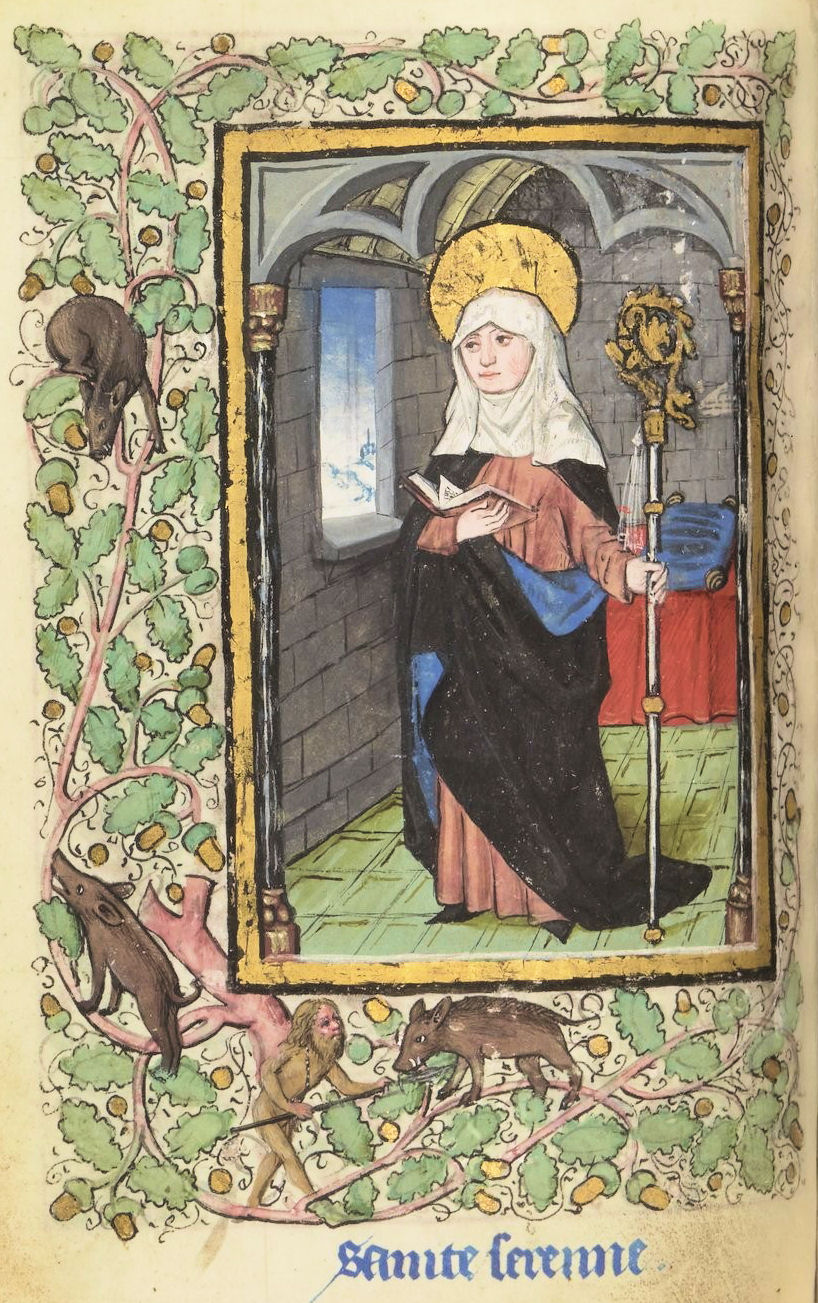 Sainte serenne.